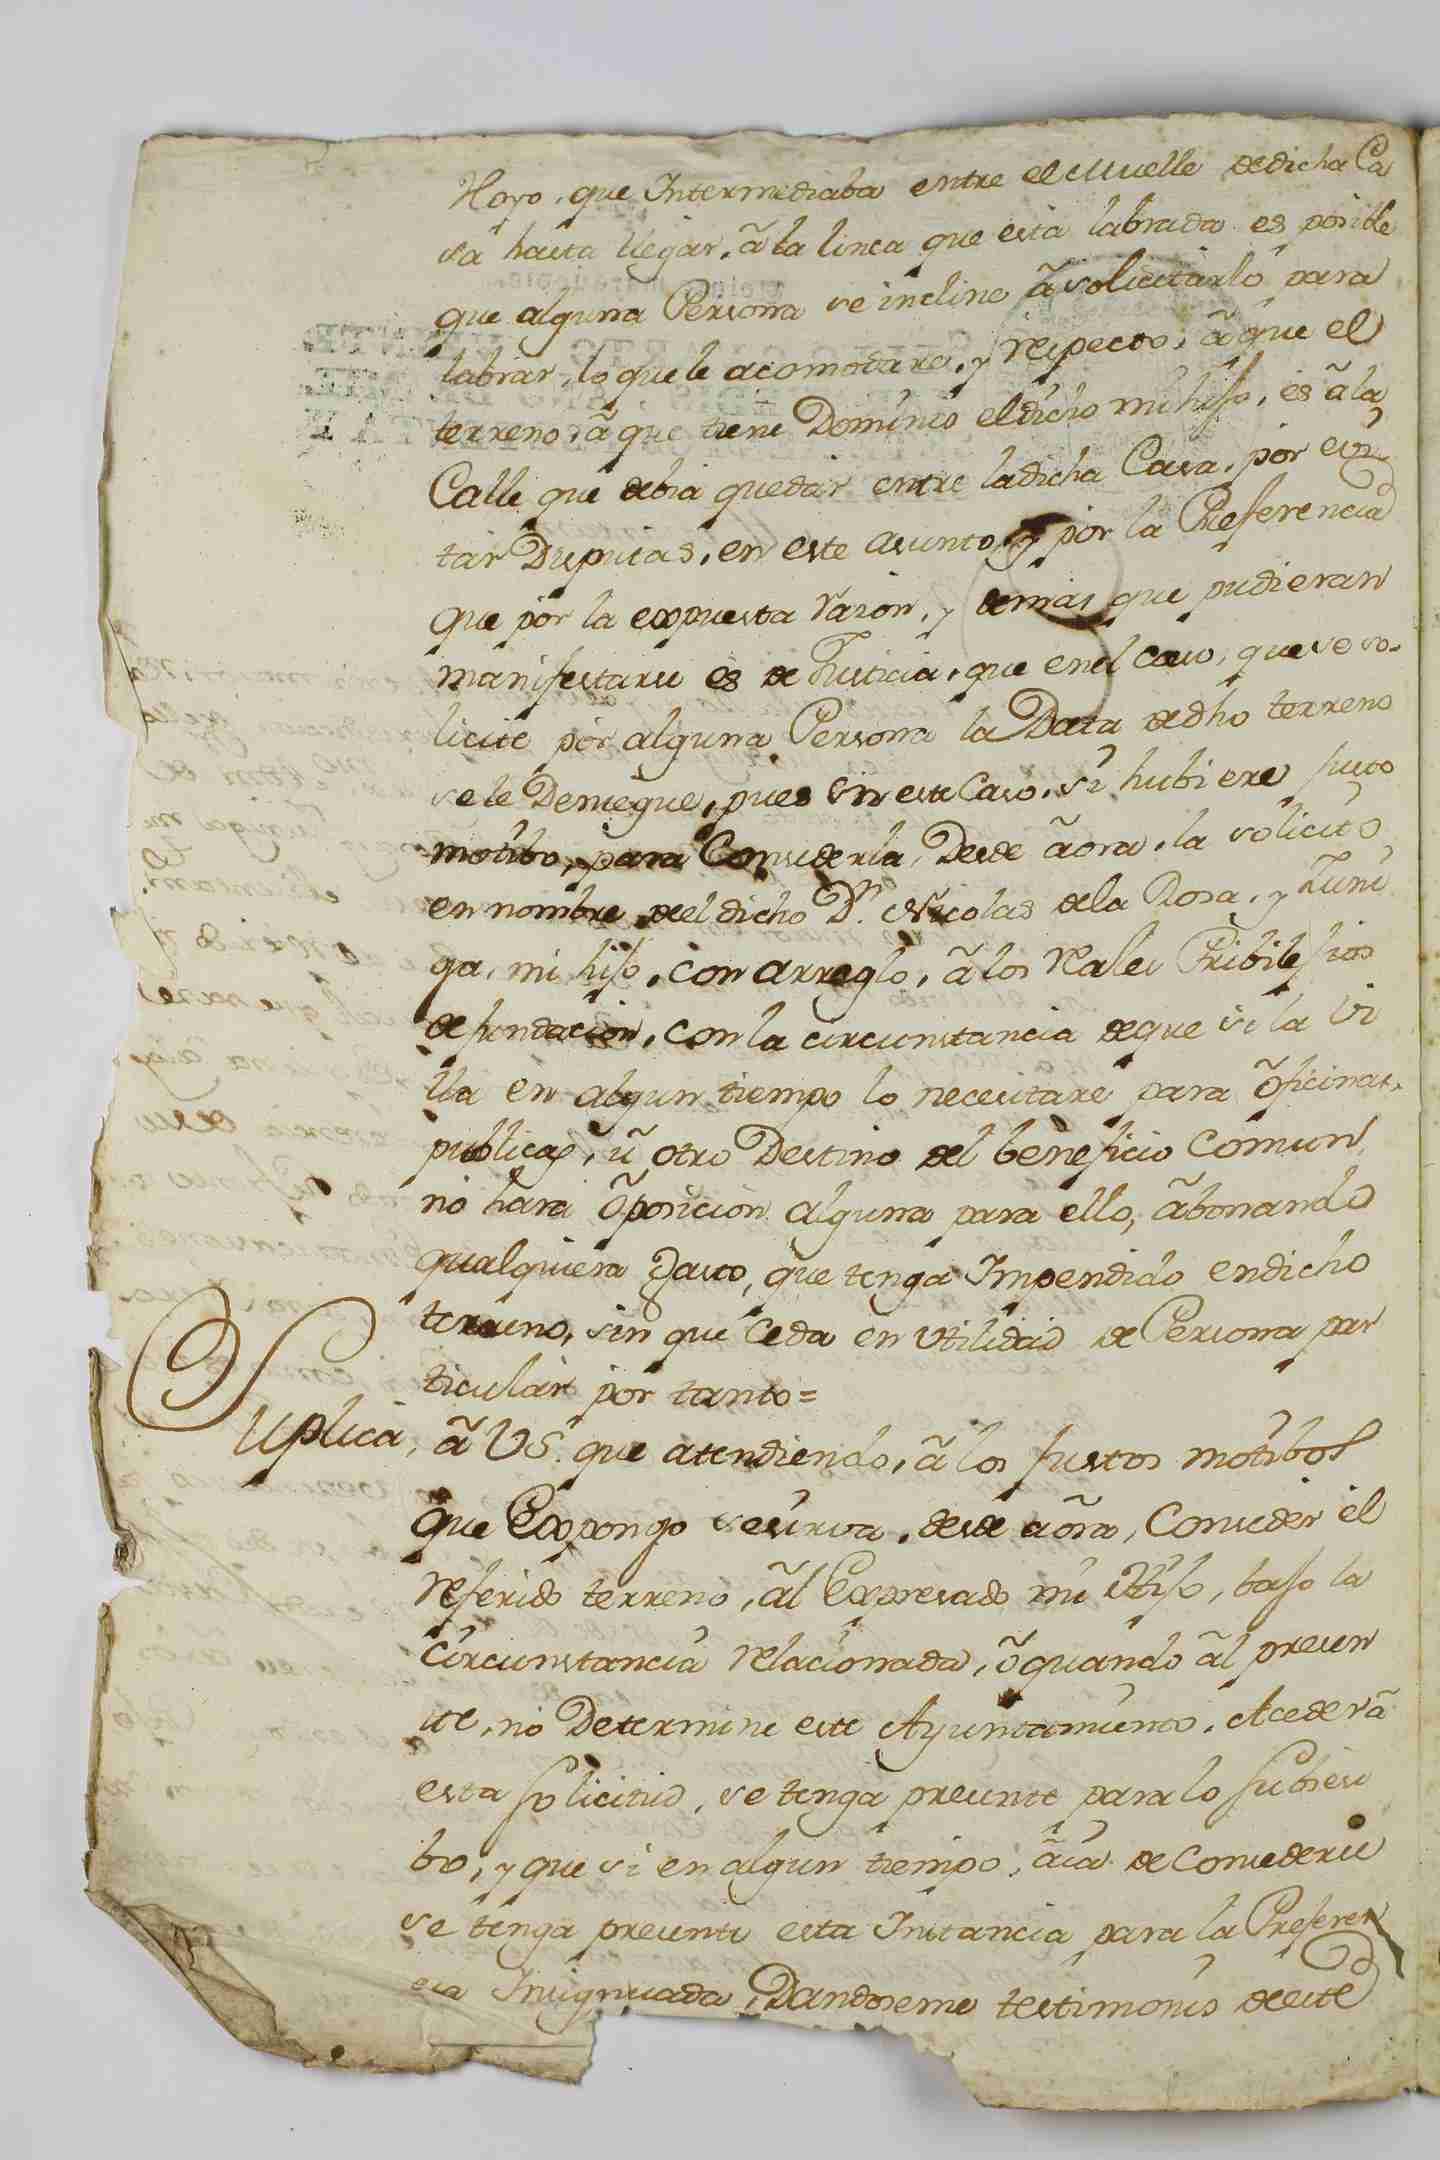 Hoyo, que Intermediaba entre el Muelle de dicha Ca
sa hasta llegar, â la linea que esta labrada es posible
que alguna Persona se incline â solicitarlo para
labrar, lo que le acomodare, y respecto, â que el
terreno, â que tiene Dominio el dicho mi hijo, es â la
Calle que debia quedar entre la dicha Casa, por evi
tar Disputas, en este asunto, y por la Preferencia
que por la expuesta razon, y demas que pudieran
manifestarse es de Justicia, que en el caso, que se so-
licite por alguna Persona la Data de dho terreno
se le Deniegue, pues sin este Caso, si hubiere justo
motibo, para Consederla, Desde âora, la solicito
en nombre, de el dicho Dn. Nicolas de la Rosa, y Zuñi
ga, mi hijo, con arreglo, â los reales Pribilejios
de fundacion, con la circunstancia de que si la Vi
lla en algun tiempo lo necesitare para ôficinas,
publicas, û otro Destino del beneficio comun,
no hara ôposicion alguna para ello, âbonando
qualquiera Gasto, que tenga Impendido en dicho
terreno, sin que ceda en Utilidad de Persona par
ticular por tanto=
Suplica, â VS. que atendiendo, â los justos motibos
que Expongo se sirva, desde aôra, Conseder el
referido terreno, âl Expresado mi Hijo, bajo la
Circunstancia relacionada, ô quando âl presen
te, no Determine este Ayuntamiento, Aceder â
esta solicitud, se tenga presente para lo subsesi
bo, y que si en algun tiempo, âia de Consederse
se tenga presente esta Instancia para la Preferen
cia Insignuada, Dandoseme testimonio de este